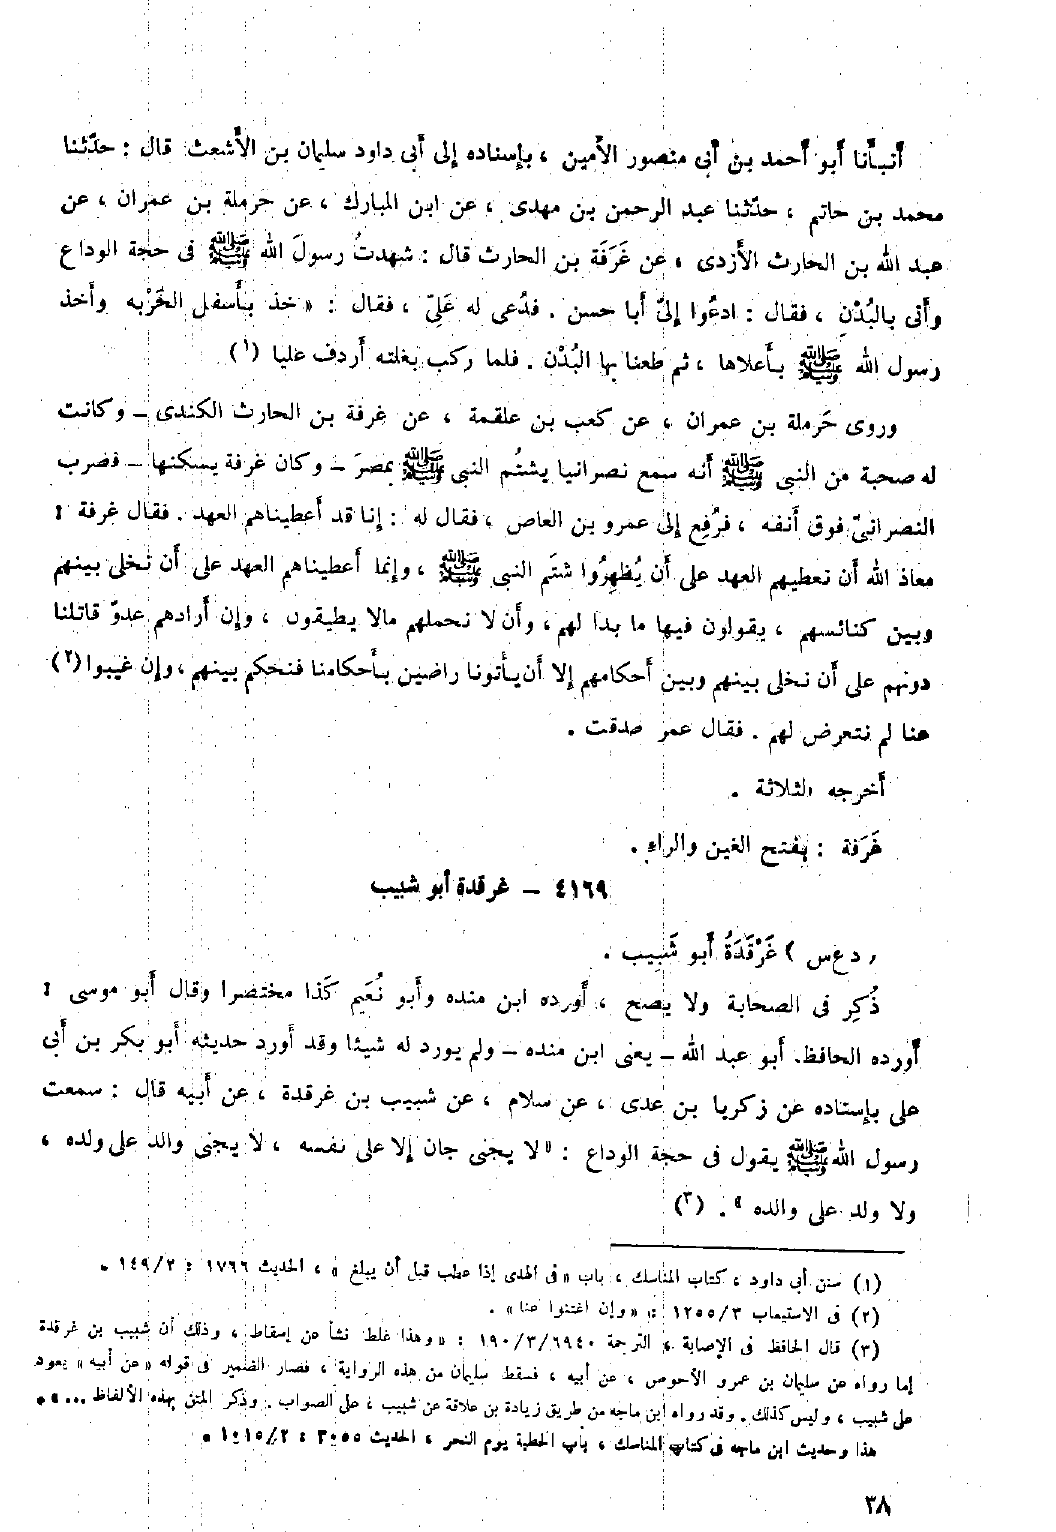 أنبأنا أبو أحمد بن أبى منصور الأمين ، بإسناده إلى أبى داود سليمان بن الأشعث قال : حدّثنا
محمد بن حاتم ، حدّثنا عبد الرحمن بن مهدى ، عن ابن المبارك ، عن حرملة بن عمران ، عن
عبد الله بن الحارث الأزدى ، عن غَرَفَة بن الحارث قال : شهدتُ رسولَ الله ﷺ فى حجة الوداع
وأتى بالبُدْنِ ، فقال : ادعُوا إلىّ أبا حسن . فدُعى له عَلِىّ ، فقال : « خذ بأسفل الحَرْبه وأخذ
رسول الله ﷺ بأعلاها ، ثم طعنا بها البُدْن . فلما ركب بغلته أردف عليا (١)
وروى حَرملة بن عمران ، عن كعب بن علقمة ، عن غرفة بن الحارث الكندى – وكانت
له صحبة من النبى ﷺ أنه سمع نصرانيا يشتُم النبى ﷺ بمصرَ – وكان غرفة يسكنها – فضرب
النصرانىّ فوق أنفه ، فرُفِع إلى عمرو بن العاص ، فقال له : إنا قد أعطيناهم العهد . فقال غرفة :
معاذ الله أن نعطيهم العهد على أن يُظهِرُوا شتَم النبى ﷺ ، وإنما أعطيناهم العهد على أن نخلى بينهم
وبين كنائسهم ، يقولون فيها ما بدا لهم ، وأن لا نحملهم مالا يطيقون ، وإن أرادهم عدوّ قاتلنا
دونهم على أن نخلى بينهم وبين أحكامهم إلا أن يأتونا راضين بأحكامنا فنحكم بينهم ، وإن غيبوا (٢)
عنا لم نتعرض لهم . فقال عمر صدقت .
أخرجه الثلاثة .
غَرَفة : بفتح الغين والراء .
٤١٦٩ – غرقدة أبو شبيب
( دع س ) غَرْقَدَةُ أبو شَبِيب .
ذُكِر فى الصحابة ولا يصح ، أورده ابن منده وأبو نُعَيم كَذا مختصرا وقال أبو موسى :
أورده الحافظ أبو عبد الله – يعنى ابن منده – ولم يورد له شيئا وقد أورد حديثه أبو بكر بن أبى
على بإسناده عن زكريا بن عدى ، عن سلام ، عن شبيب بن غرقدة ، عن أبيه قال : سمعت
رسول الله ﷺ يقول فى حجة الوداع : « لا يجنى جان إلا على نفسه ، لا يجنى والد على ولده ،
ولا ولد على والده » . (٣)
(١) سنن أبى داود ، كتاب المناسك ، باب « فى الهدى إذا عطب قبل أن يبلغ » ، الحديث ١٧٦٦ : ١٤٩/٢ .
(٢) فى الاستيعاب ١٢٥٥/٣ : « وإن اغتنوا عنا » .
(٣) قال الحافظ فى الإصابة ، الترجمة ١٩٠/٣/٦٩٤٠ : « وهذا غلط نشأ عن إسقاط ، وذلك أن شبيب بن غرقدة
إما رواه عن سليمان بن عمرو الأحوص ، عن أبيه ، فسقط سليمان من هذه الرواية ، فصار الضمير فى قوله « عن أبيه » يعود
على شبيب ، وليس كذلك . وقد رواه ابن ماجه من طريق زيادة بن علاقة عن شبيب ، على الصواب . وذكر المتن بهذه الألفاظ ... » .
هذا وحديث ابن ماجه فى كتاب المناسك ، باب الخطبة يوم النحر ، الحديث ٣٠٥٥ : ١٠١٥/٢ .
٣٨